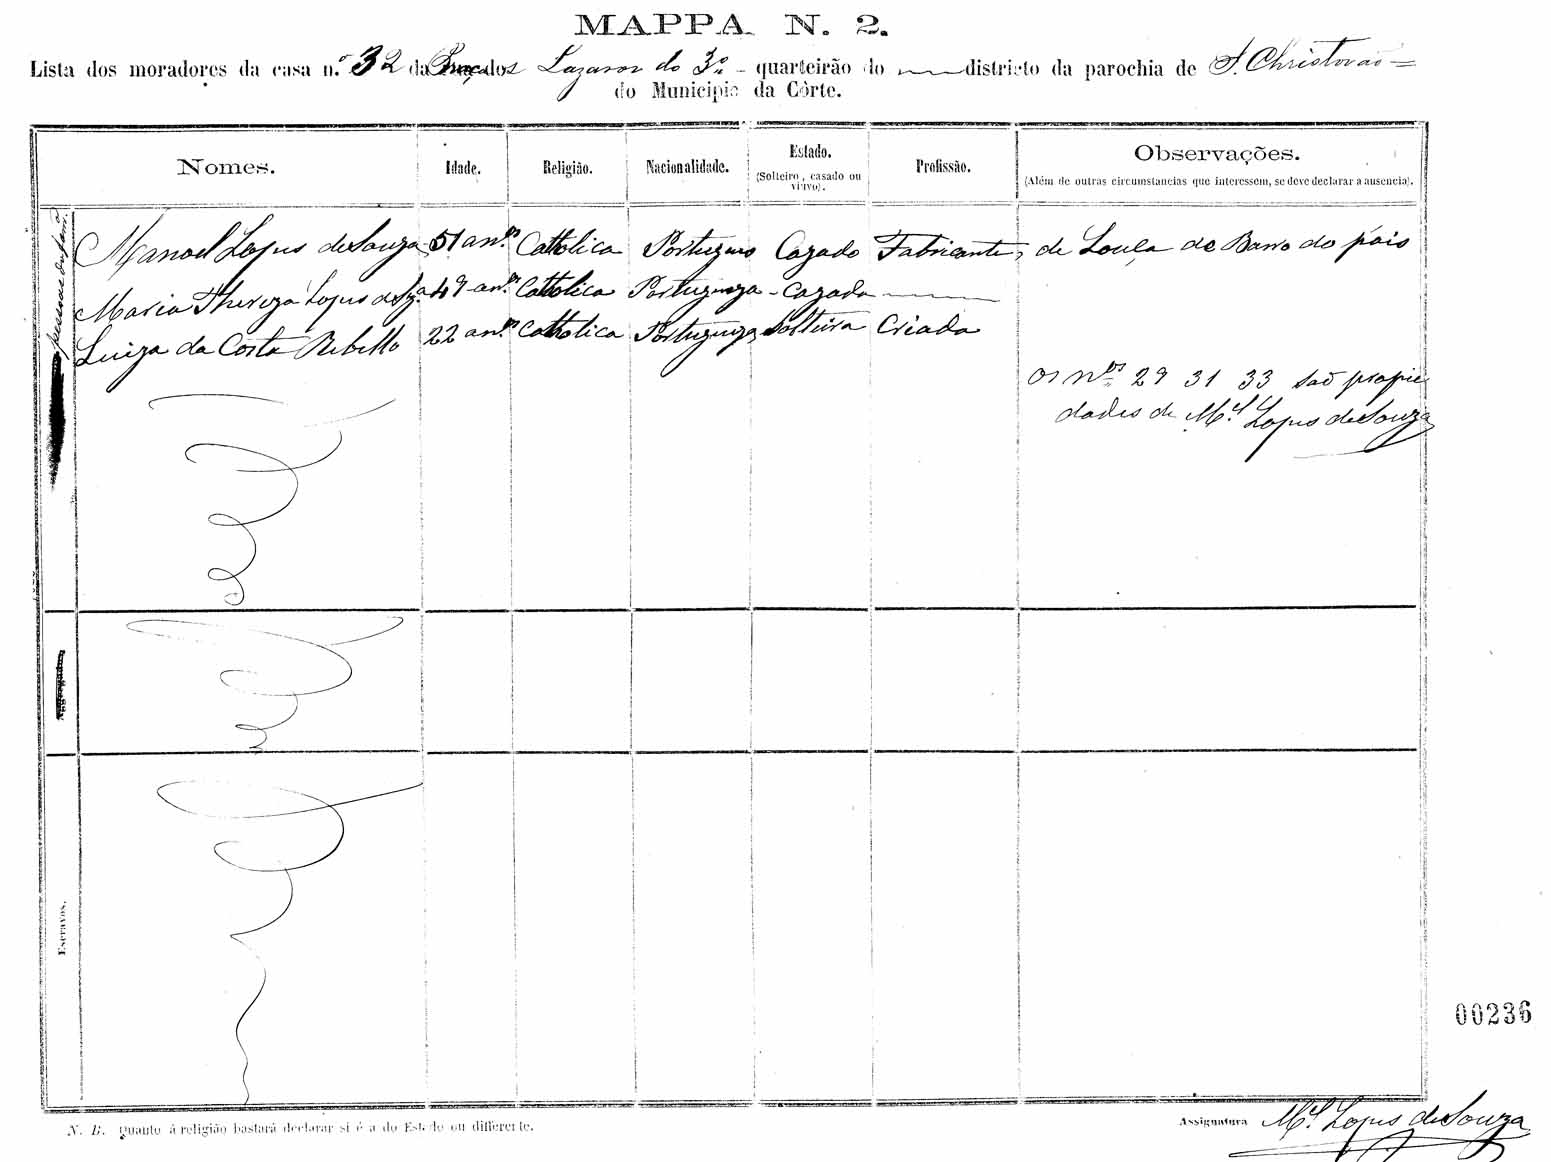 MAPPA N. 2.
Lista dos moradores da casa n.º 32 da Praça dos Lazaros do 3.º quarteirão do districto da parochia de S. Christovão
do Municipio da Côrte.
Nomes. Idade. Religião. Nacionalidade. Estado. (Solteiro, casado ou viuvo). Profissão. Observações. (Além de outras circumstancias que interessem, se deve declarar a ausencia).
pessoas da fam.ª
Manoel Lopes de Souza 51 an.os Catholica Portuguez Cazado Fabricante, de Louça de Barro do païs
Maria Thereza Lopes de Sz.a 49 an.os Catholica Portugueza Cazada
Luiza da Costa Rebello 22 an.os Catholica Portugueza Solteira Criada
Os n.os 29 31 33 saõ proprie
dades de M.el Lopes de Souza
Escravos.
00236
N. B. Quanto á religião bastará declarar si é a do Estado ou differente.
Assignatura M.el Lopes de Souza